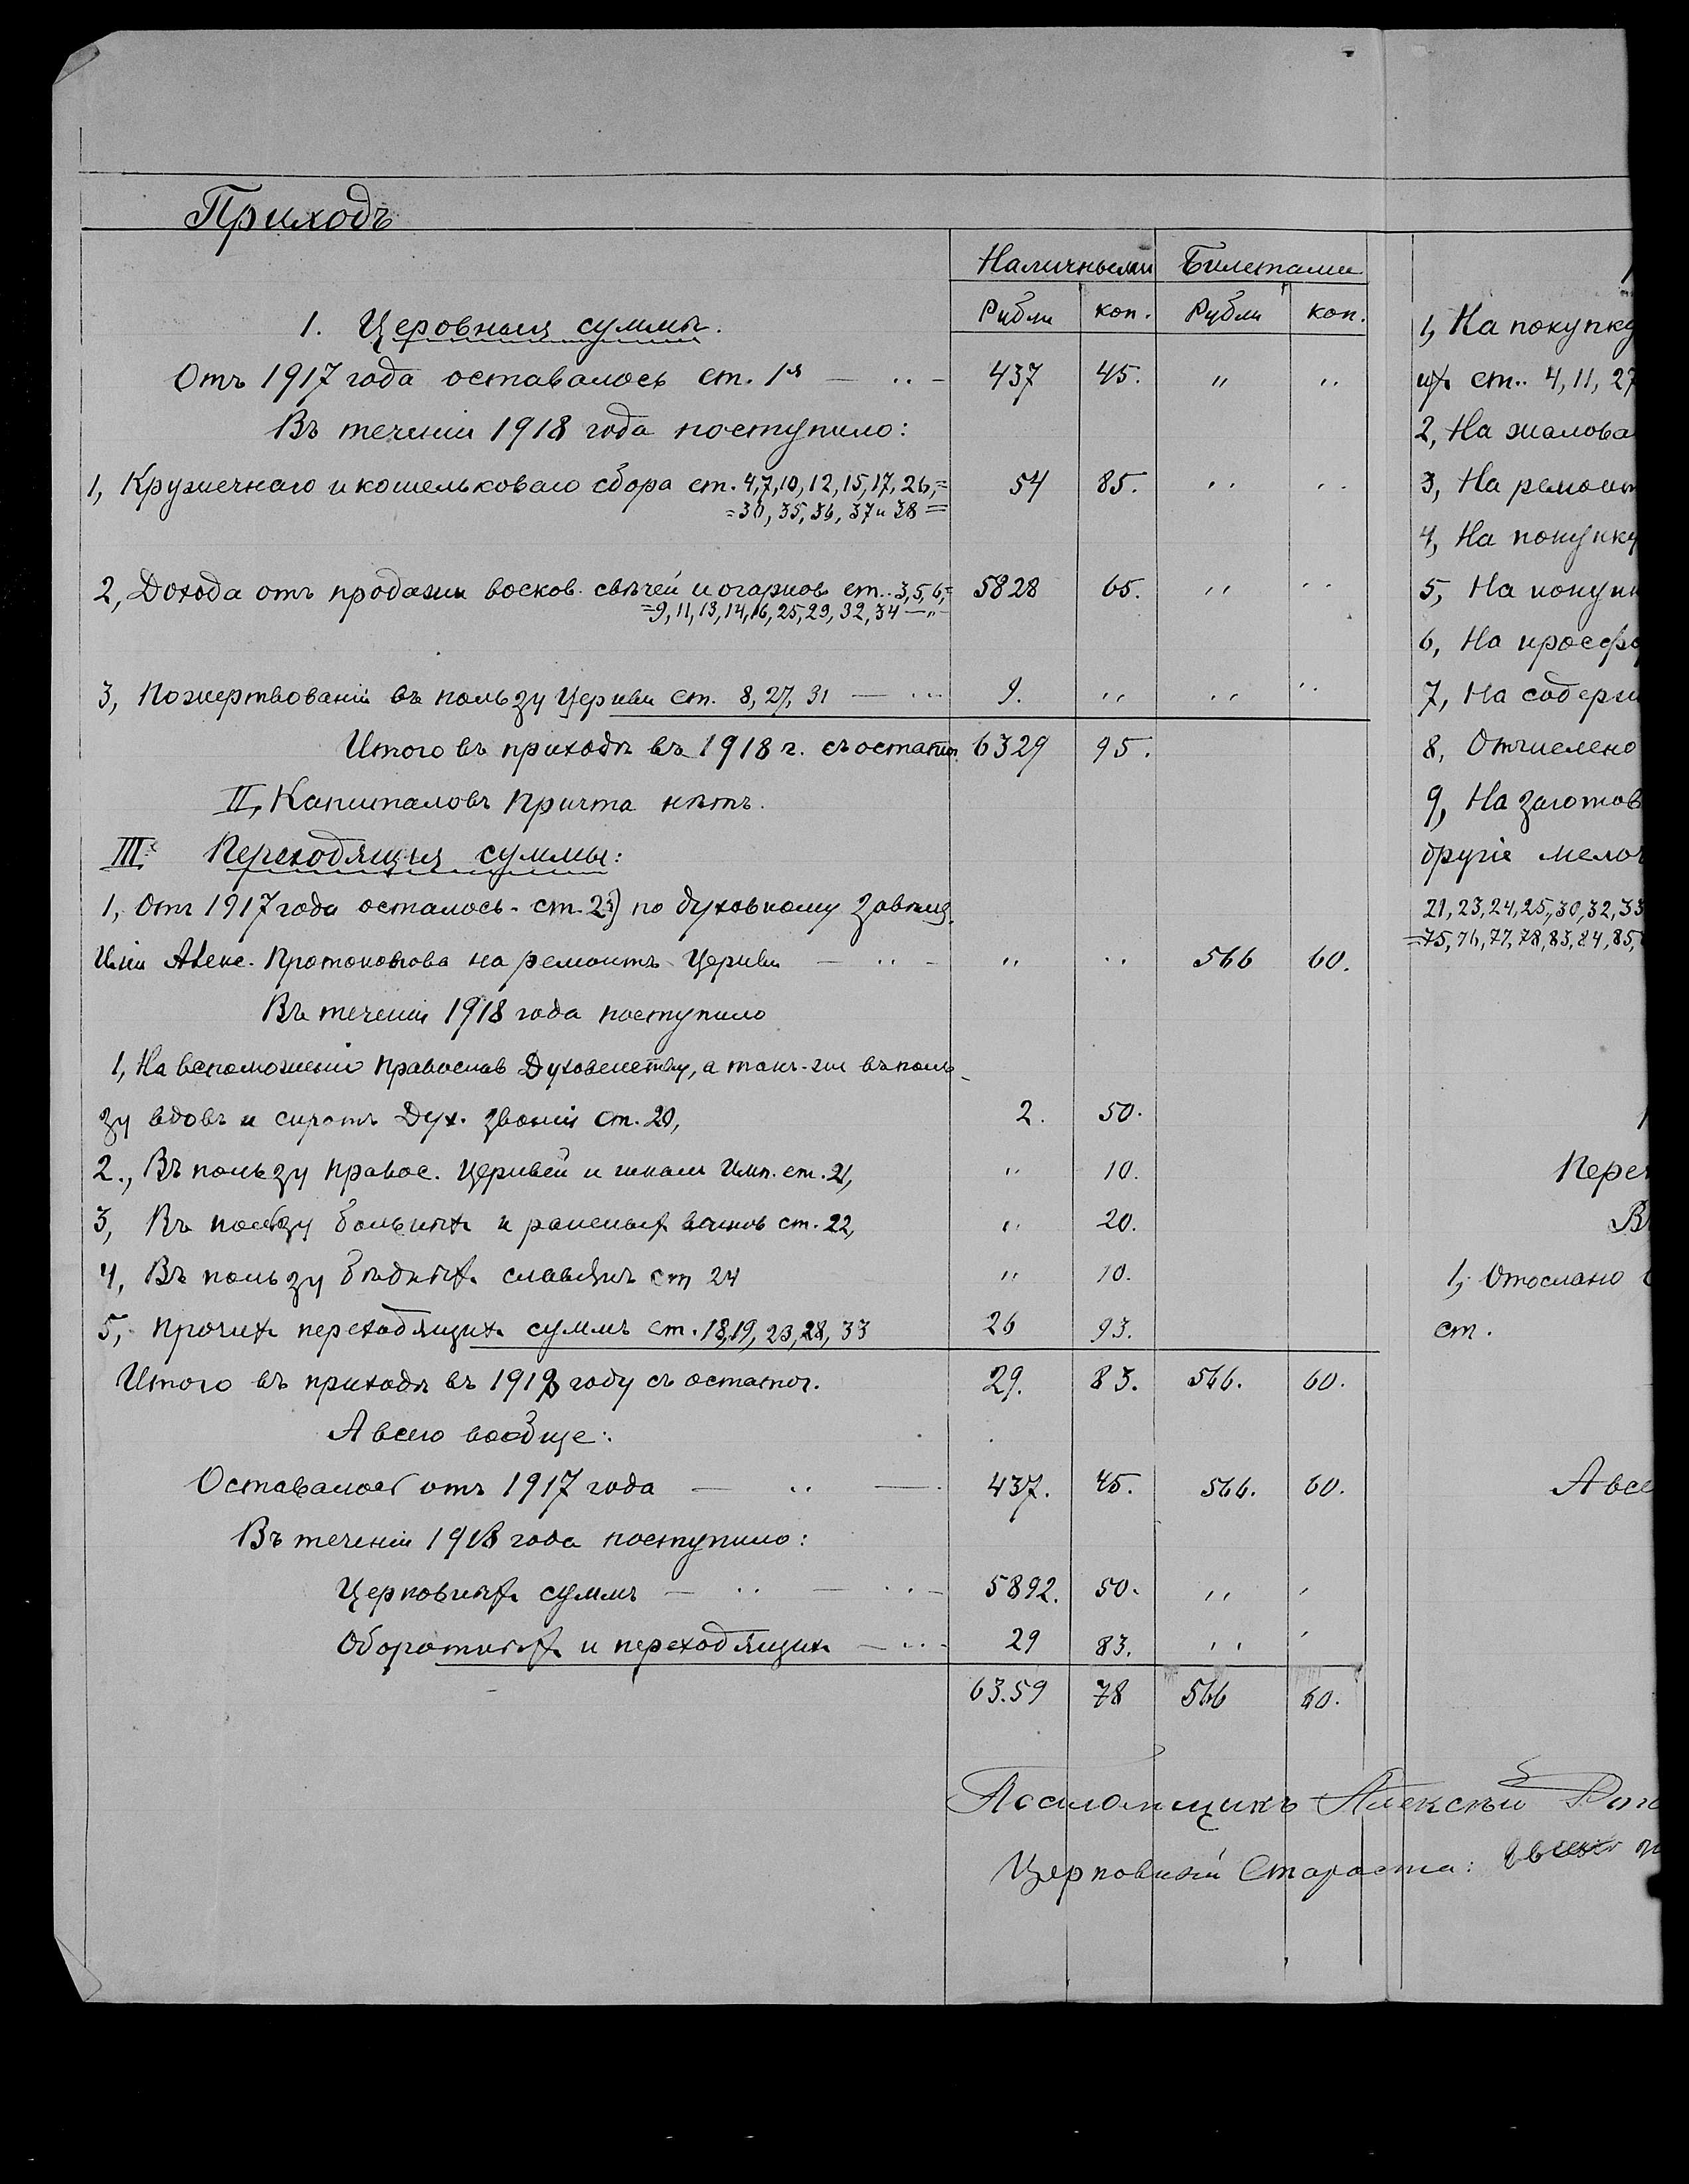 Приходъ
Наличными Билетами
Рубли коп. Рубли коп.
1. Церовныя суммы.
Отъ 1917 года оставалось ст. 1я — .. – 437 45. " "
Въ теченіи 1918 года поступило:
1, Кружечнаго и кошельковаго сбора ст. 4,7,10,12,15,17,26,= 54 85. " "
=30, 35, 36, 37 и 38 =
2, Дохода отъ продажи восков. свѣчей и огарков ст.. 3,5,6,= 5828 65. " "
=9,11,13,14,16,25,29,32,34 — " –
3, Пожертвованій въ пользу Церкви ст. 8,27,31 — ... 9. " " "
Итого въ приходѣ въ 1918 г. съ остаточ. 6329 95.
II, Капиталовъ Причта нѣтъ.
III. Переходящія суммы:
1, Отъ 1917 года осталось ст. 2я) по духовному завѣщ.
Алекс. Протопопова на ремонтъ Церкви — .. – " " 566 60.
Въ теченіи 1918 года поступило
1, На вспоможеніе православ Духовенству, а такъ-же въ поль-
зу вдовъ и сиротъ Дух. званія ст. 20, 2. 50.
2., Въ пользу правос. Церквей и школъ Имп. ст. 21, " 10.
3, Въ пользу больныхъ и раненыхъ воиновъ ст. 22, " 20.
4, Въ пользу бѣдныхъ славянъ ст 24 " 10.
5, Прочихъ переходящихъ суммъ ст. 18,19,23,28,33 26 93.
Итого въ приходѣ въ 1918 году съ остаточ. 29. 83. 566. 60.
А всего вообще:
Оставалось отъ 1917 года — .. — 437. 45. 566. 60.
Въ теченіи 1918 года поступило:
Церковныхъ суммъ — .. — .. – 5892. 50. " '
Оборотныхъ и переходящихъ — .. – 29 83. " '
63.59 78 566 60.
Псаломщикъ Алексѣй
Церковный Староста:
1, На покупку
ихъ ст.. 4, 11, 27
2, На жалова
3, На ремонт
4, На покупку
5, На покупк
6, На просфо
7, На содерж
8, Отчислено
9, На заготов
другіе мелоч
21,23,24,25,30,32,33
=75,76,77,78,83,84,85,
Перех
Въ
1, Отослано
ст.
А все